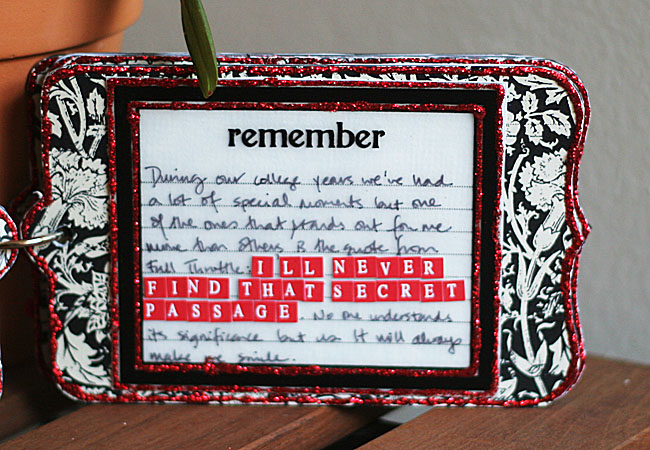 remember
During our college years we've had
a lot of special moments but one
of the ones that stands out for me
more than others is the quote from
Full Throttle: ILL NEVER
FIND THAT SECRET
PASSAGE. No one understands
its significance but us. It will always
make me smile.